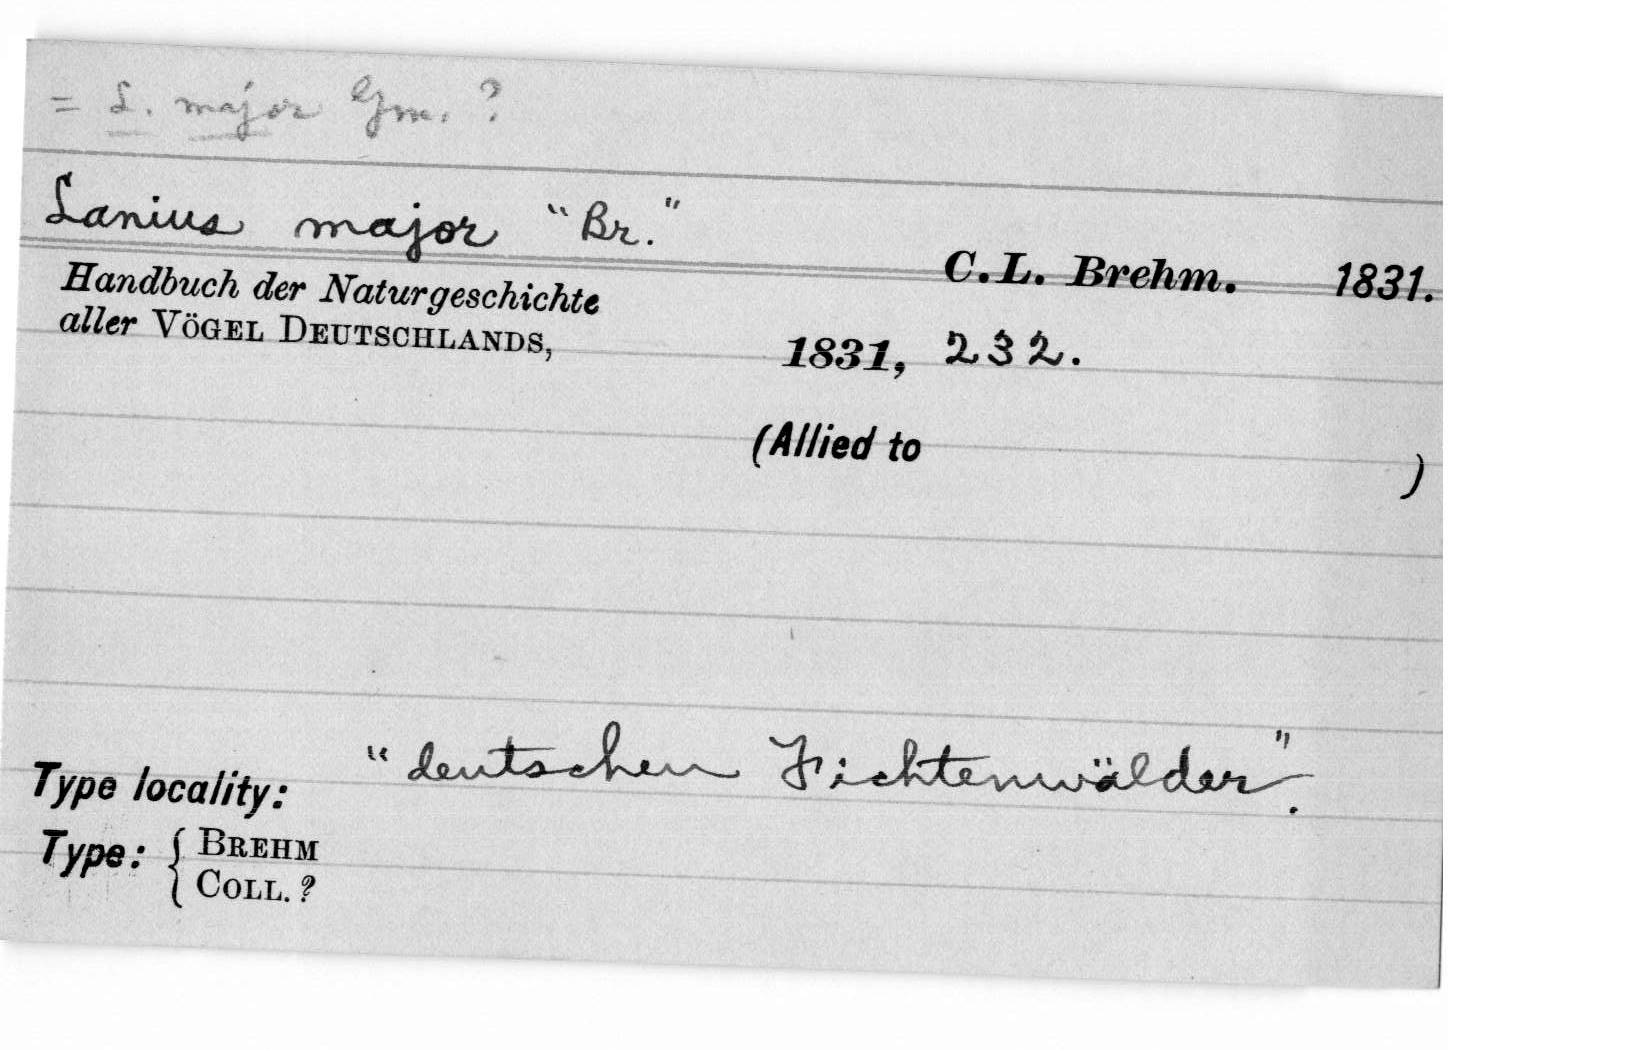 = L. major Gm. ?
Lanius major "Br."
C. L. Brehm. 1831.
Handbuch der Naturgeschichte
aller VÖGEL DEUTSCHLANDS,
1831, 232.
(Allied to )
Type locality: "deutschen Fichtenwälder".
Type: { BREHM
COLL. ?